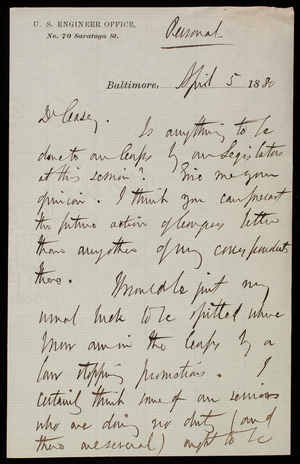 U. S. ENGINEER OFFICE,
No. 70 Saratoga St.
Personal
Baltimore, April 5 1880
Dr Casey.
Is anything to be
done to our Corps by our Legislators
at this session? Give me your
opinion. I think you can forecast
the future action of Congress better
than any other of my correspondents
there. Would be just my
usual luck to be spitted where
now am in the Corps by a
law stopping promotions. I
certainly think some of our seniors
who are doing no duty (and
there are several) ought to be